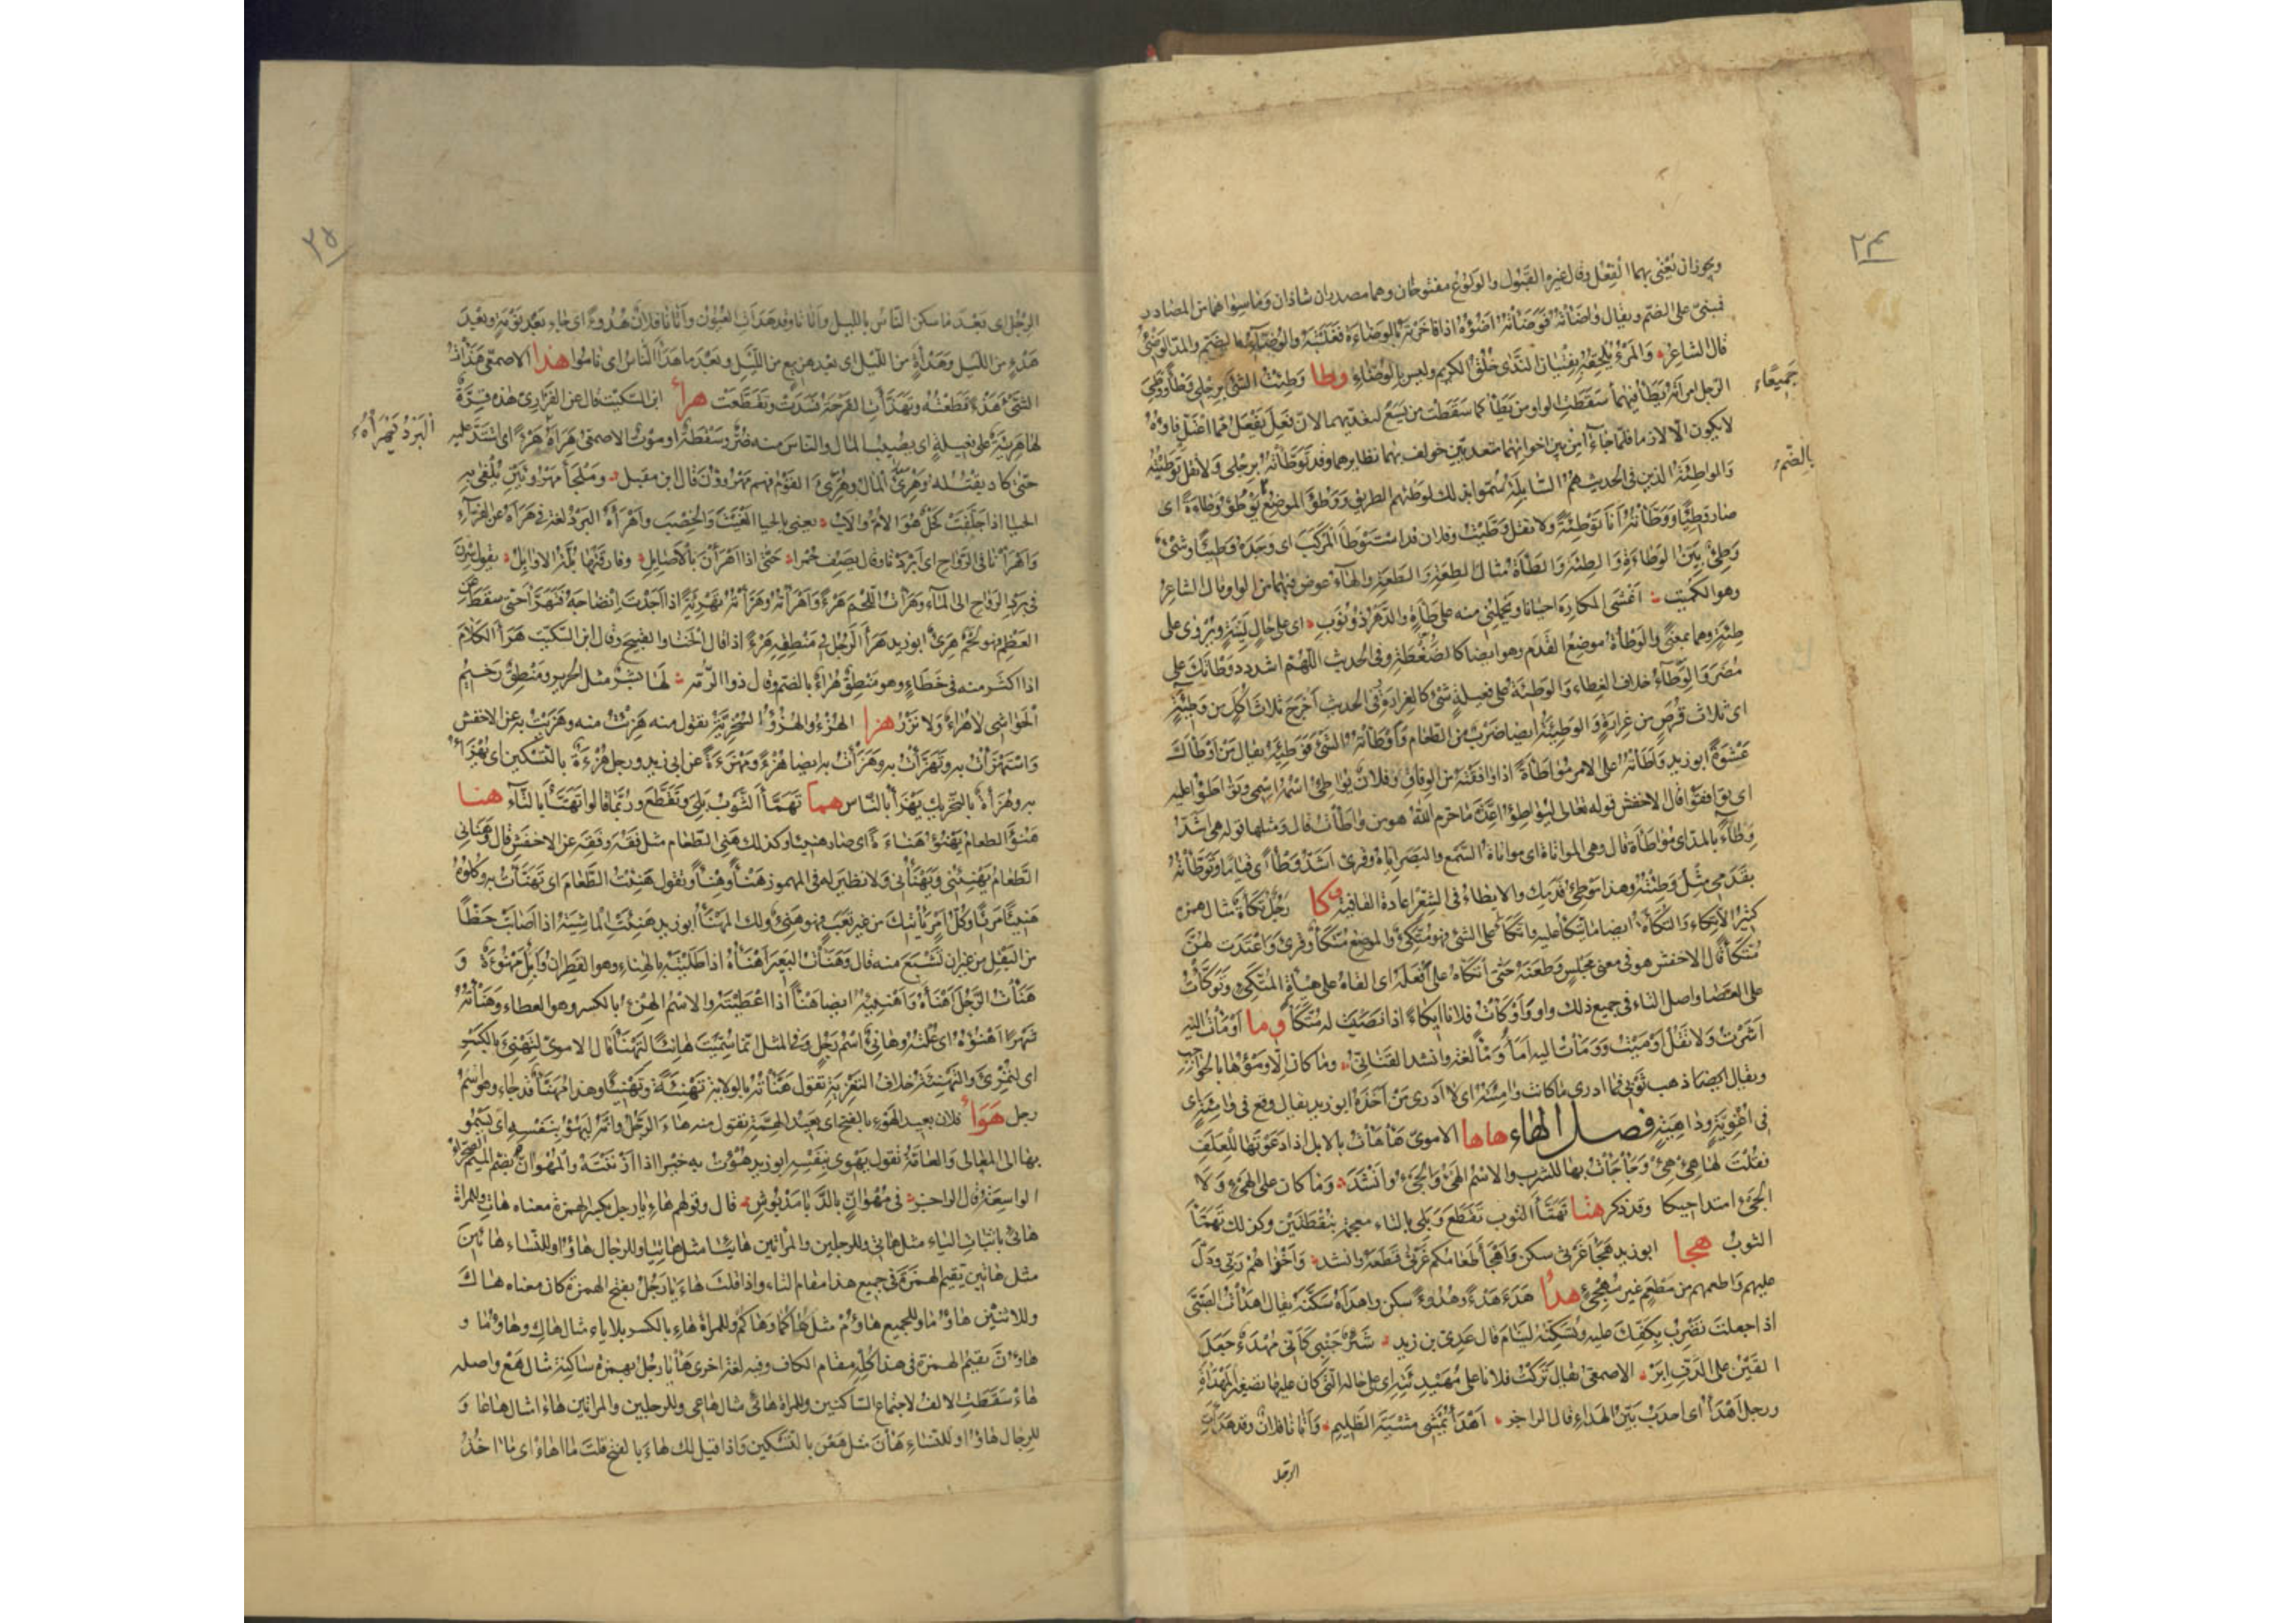 ٢٤
ويجوز ان يُعْنى بهما الفِعْل وقال غيره القَبُول والوَلُوع مفتوحان وهما مصدران شاذان وما سواهما من المصادر
فمبنىّ على الضمّ ويقال واضَأتُه فوضَأتُه اضَؤُه اذا فاخرتَه بالوضاءة فغلبتَه والوُضّاء بالضم والمد الوَضِئ
قال الشاعر والمرءُ يُلحِقه بفتيان النَدى خُلُقُ الكريم وليس بالوُضّاء وطا وَطِئتُ الشئ برجلى وَطْأً ووطِئ
جميعًا
الرجل امرأته يَطَأ فيهما سقطت الواو من يَطَأ كما سقطت من يَسَع لتعدّيهما لان فَعِلَ يَفْعَل مما اعتلّ فاؤه
لا يكون الا لازما فلما جاءا من بين اخواتهما متعديين خولف بهما نظايرهما وقد توطّأته برجلى ولا تقل توطّيته
بالضم
والواطِئَة الذين فى الحديث هم السابلة سُمّوا بذلك لوَطْئهم الطريق ووَطُؤَ الموضع يَوْطُؤ وطاءة اى
صار وطيئا ووطّأته انا توطئة ولا تقل وطّيت وفلان قد استوطأ المركب اى وجده وطيئا وشئ
وطئ بيّن الوطاءة والطِئة والطَأة مثال الطِعة والطَعة والهاء عوض فيهما من الواو وقال الشاعر
وهو الكميت اغشى المكاره احيانا ويحملنى منه على طأة والدهر ذو نُوَب اى على حال لينة ويروى على
طِئة وهما بمعنى والوطأة موضع القدم وهو ايضا كالضغطة وفى الحديث اللهم اشدد وطأتك على
مضر والوِطاء خلاف الغطاء والوطيئة على فعيلة شئ كالغرارة وفى الحديث اخرج ثلاث اكل من وطيئة
اى ثلاث قرص من غرارة والوطيئة ايضا ضرب من الطعام واوطأته الشئ فوطئه يقال من اوطأك
عشوة ابو زيد واطأته على الامر مواطأة اذا وافقته من الوفاق وفلان يواطئ اسمه اسمى وتواطئوا عليه
اى توافقوا قال الاخفش قوله تعالى ليواطئوا عدة ما حرم الله هو من واطأت قال ومثلها قوله هى اشد
وطاء بالمد اى مواطأة قال وهى المواتاة اى مواتاة السمع والبصر اياه وقرئ اشد وطأ اى قياما وتوطأته
بقدمى مثل وطئته وهذا موطئ قدمك والايطاء فى الشعر اعادة القافية وكا رجل تكأة مثال همزة
كثير الاتكاء والتكأة ايضا ما يتكأ عليه واتكأ على الشئ فهو متكئ والموضع متكأ وقرئ واعتدت لهن
متكأ قال الاخفش هو فى معنى مجلس وطعنه حتى اتكأه على افعله اى القاه على هيأة المتكئ وتوكأت
على العصا واصل التاء فى جميع ذلك واو واوكأت فلانا ايكاء اذا نصبت له متكأ وما اومأت اليه
اشرت ولا تقل اوميت وومأت اليه امأ ومأ لغة وانشد القنانى وما كان الا ومؤها بالحواجب
ويقال ايضا ذهب ثوبى فما ادرى ما كانت وامئته اى لا ادرى من اخذه ابو زيد يقال وقع فى وامئة اى
فى اغوية وداهية فصل الهاء هاها الاموى هأهأت بالابل اذا دعوتها للعلف
فقلت لها هئ هئ وجأجأت بها للشرب والاسم الهئ والجئ وانشد وما كان على الهئ ولا
الجئ امتداحيكا وقد ذكر هتا تهتأ الثوب تقطع وبلى بالتاء معجمة بنقطتين وكذلك تهمأ
الثوب هجا ابو زيد هجأ غرثى سكن واهجأ طعامكم غرثى قطعه وانشد واخزاهم ربى ودل
عليهم واطعمهم من مطعم غير مهجئ هدا هدأ هدءا وهدوءا سكن واهدأه سكنه يقال اهدأت الصبى
اذا جعلت تضرب بكفك عليه وتسكنه لينام قال عدى بن زيد شئز جنبى كأنى مهدأ جعل
القين على الدف ابر الاصمعى يقال تركت فلانا على مهيدئته اى على حاله التى كان عليها تصغير المهدأة
ورجل اهدأ اى احدب بين الهدا قال الراجز اهدأ يمشى مشية الظليم واتانا فلان وقد هدأت
الرجل
٢٥
الرِجْل اى بعد ما سكن الناس بالليل واتانا وقد هدأت العيون واتانا فلان هدوءا اى جاء بعد نومة وبعد
هدء من الليل وهدأة من الليل اى بعد هزيع من الليل وبعد ما هدأ الناس اى ناموا هذا الاصمعى هذأت
الشئ هذءا قطعته وتهذأت القرحة فسدت وتقطعت هرأ ابن السكيت قال عن الفزارى هذه قرة
البرد يهرأه
لها هريئة على فعيلة اى يصيب المال والناس منه ضر وسقطة او موت الاصمعى هرأه هرءا اى اشتد عليه
حتى كاد يقتله وهرئ المال وهرئ القوم فهم مهروؤن قال ابن مقبل وملجأ مهروئين يلفى به
الحيا اذا جلفت كحل هو الام والاب يعنى بالحيا الغيث والخصب واهرأه البرد لغة فى هرأه عن الفراء
واهرأنا فى الرواح اى ابردنا وقال يصف حمرا حتى اذا اهرأن بالاصايل وفارقتها بلة الاوابل يقول سرن
فى برد الرواح الى الماء وهرأت اللحم هرءا واهرأته وهرأته تهرئة اذا اجدت انضاجه فتهرأ حتى سقط عن
العظم فهو لحم هرئ ابو زيد هرأ الرجل فى منطقه هرءا اذا قال الخنا والقبيح وقال ابن السكيت هرأ الكلام
اذا اكثر منه فى خطاء وهو منطق هراء بالضم وقال ذو الرمة لها بشر مثل الحرير ومنطق رخيم
الحواشى لا هراء ولا نزر هزا الهزء والهزؤ السخرية تقول منه هزئت منه وهزئت به عن الاخفش
واستهزأت به وتهزأت به وهزأت به ايضا هزءا ومهزءة عن ابى زيد ورجل هزءة بالتسكين اى يهزأ
به وهزأة بالتحريك يهزأ بالناس هما تهمأ الثوب بلى وتقطع وربما قالوا تهتأ بالتاء هنا
هنؤ الطعام يهنؤ هناءة اى صار هنيئا وكذلك هنئ الطعام مثل فقه وفقه عن الاخفش قال وهنأنى
الطعام يهنئنى ويهنأنى ولا نظير له فى المهموز هنأ وهنأ وتقول هنئت الطعام اى تهنأت به وكلوه
هنيئا مريئا وكل امر يأتيك من غير تعب فهو هنئ ولك المهنأ ابو زيد هنئت الماشية اذا اصابت حظا
من البقل من غير ان تشبع منه قال وهنأت البعير اهنأه اذا طليته بالهناء وهو القطران وابل مهنوءة و
هنأت الرجل اهنأه واهنئه ايضا هنأ اذا اعطيته والاسم الهنء بالكسر وهو العطاء وهنأته
شهرا اهنؤه اى علته وهانئ اسم رجل وفى المثل انما سميت هانئا لتهنأ قال الاموى لتهنئ بالكسر
اى لتمرئ والتهنئة خلاف التعزية تقول هنأته بالولاية تهنئة وتهنيئا وهذا مهنأ قد جاء وهو اسم
رجل هوأ فلان بعيد الهوء بالفتح اى بعيد الهمة تقول منه هاء الرجل وانه ليهوء بنفسه اى يسمو
بها الى المعالى والعامة تقول يهوى بنفسه ابو زيد هؤت به خيرا اذا ازننته والمهوأن بضم الميم الصحراء
الواسعة قال الراجز فى مهوأن بالدبا مدبوش قال وقولهم هاء يا رجل بكسر الهمزة معناه هات وللمرأة
هائى باثبات الياء مثل هاتى وللرجلين والمرأتين هائيا مثل هاتيا وللرجال هاؤا وللنساء هائين
مثل هاتين يقيم الهمزة فى جميع هذا مقام التاء واذا قلت هاء يا رجل بفتح الهمزة كان معناه هاك
وللاثنين هاؤما وللجميع هاؤم مثل هاكما وهاكم وللمرأة هاء بالكسر بلا ياء مثال هاك وهاؤما و
هاؤن تقيم الهمزة فى هذا كله مقام الكاف وفيه لغة اخرى هأ يا رجل بهمزة ساكنة مثال هع واصله
هاء سقطت الالف لاجتماع الساكنين وللمرأة هائى مثال هاعى وللرجلين والمرأتين هاءا مثال هاعا و
للرجال هاؤا وللنساء هأن مثل هعن بالتسكين واذا قيل لك هاء بالفتح قلت ما اهاء اى ما اخذ